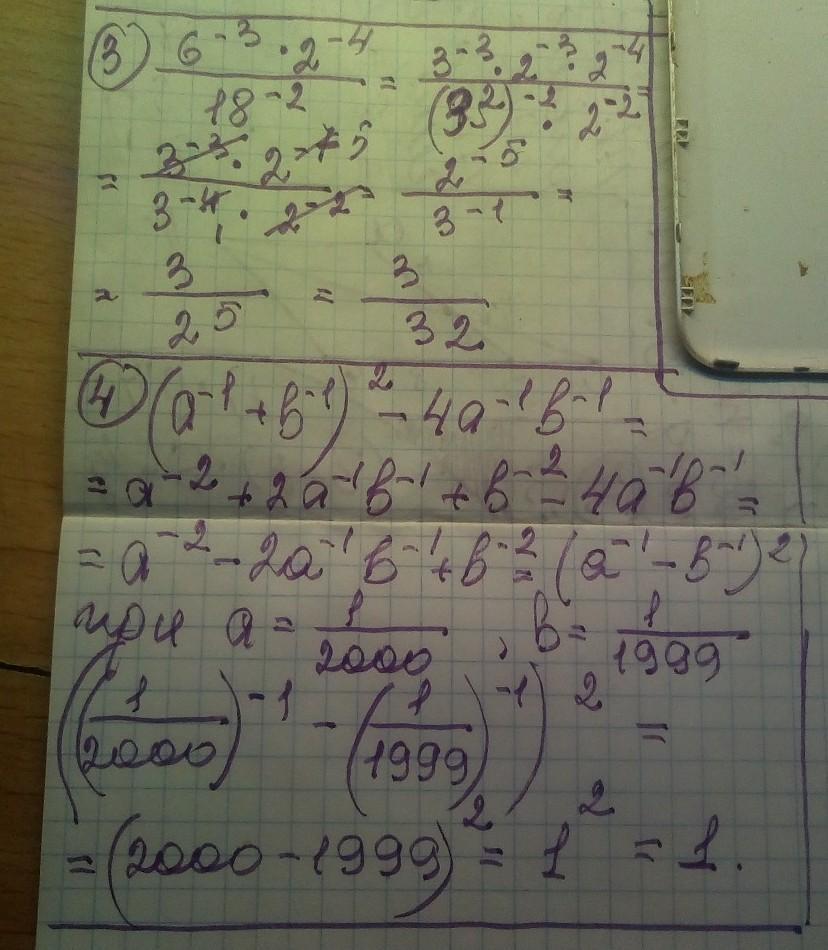 ③ 6⁻³ · 2⁻⁴ / 18⁻² = 3⁻³ · 2⁻³ · 2⁻⁴ / (3²)⁻² · 2⁻² =
= 3⁻³ · 2⁻⁷ ⁵ / 3⁻⁴ ¹ · 2⁻² = 2⁻⁵ / 3⁻¹ =
= 3 / 2⁵ = 3 / 32
④ (a⁻¹ + b⁻¹)² - 4a⁻¹b⁻¹ =
= a⁻² + 2a⁻¹b⁻¹ + b⁻² - 4a⁻¹b⁻¹ =
= a⁻² - 2a⁻¹b⁻¹ + b⁻² = (a⁻¹ - b⁻¹)²
при a = 1/2000, b = 1/1999
((1/2000)⁻¹ - (1/1999)⁻¹)² =
= (2000 - 1999)² = 1² = 1.